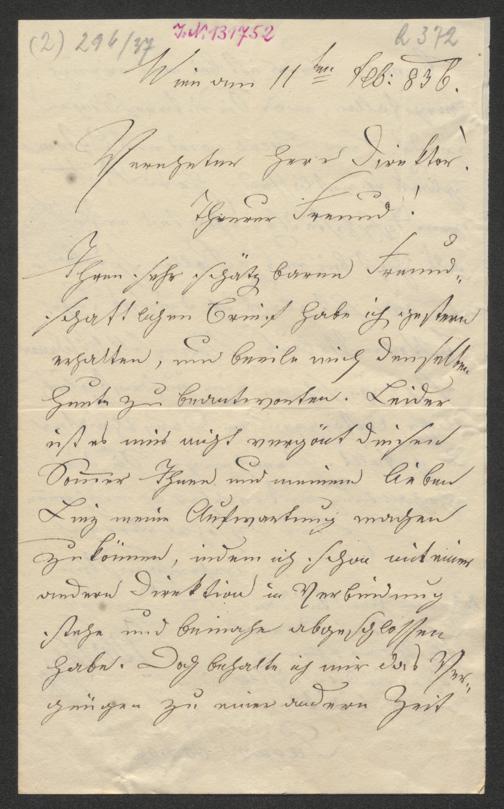 (2) 296/37 J.N. 131752 R 372
Wien am 11ten Feb: 836.
Verehrter Herr Direktor.
Theurer Freund!
Ihren sehr schätzbaren Freund„
schaftlichen Brief habe ich gestern
erhalten, und beeile mich denselben
heute zu beantworten. Leider
ist es mir nicht vergönt diesen
Sommer Ihnen und meinem lieben
Linz meine Aufwartung machen
zu können, indem ich schon mit einer
andern Direktion in Verbindung
stehe und beinahe abgeschlossen
habe. Doch behalte ich mir das Ver„
gnügen zu einer andern Zeit